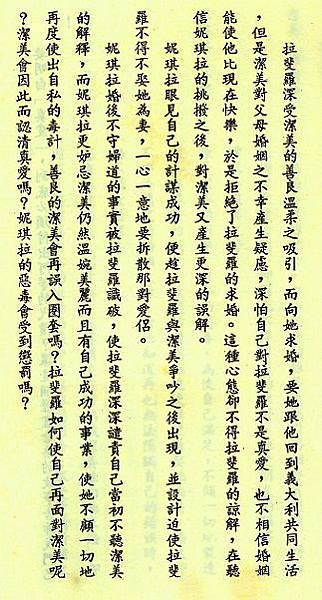 拉斐羅深受潔美的善良溫柔之吸引，而向她求婚，要她跟他回到義大利共同生活
，但是潔美對父母婚姻之不幸產生疑慮，深怕自己對拉斐羅不是真愛，也不相信婚姻
能使他比現在快樂，於是拒絕了拉斐羅的求婚。這種心態卻不得拉斐羅的諒解，在聽
信妮琪拉的挑撥之後，對潔美又產生更深的誤解。
妮琪拉眼見自己的計謀成功，便趁拉斐羅與潔美爭吵之後出現，並設計迫使拉斐
羅不得不娶她為妻，一心一意地要拆散那對愛侶。
妮琪拉婚後不守婦道的事實被拉斐羅識破，使拉斐羅深深譴責自己當初不聽潔美
的解釋，而妮琪拉更妒忌潔美仍然溫婉美麗而且有自己成功的事業，使她不顧一切地
再度使出自私的毒計，善良的潔美會再誤入圈套嗎？拉斐羅如何使自己再面對潔美呢
？潔美會因此而認清真愛嗎？妮琪拉的惡毒會受到懲罰嗎？